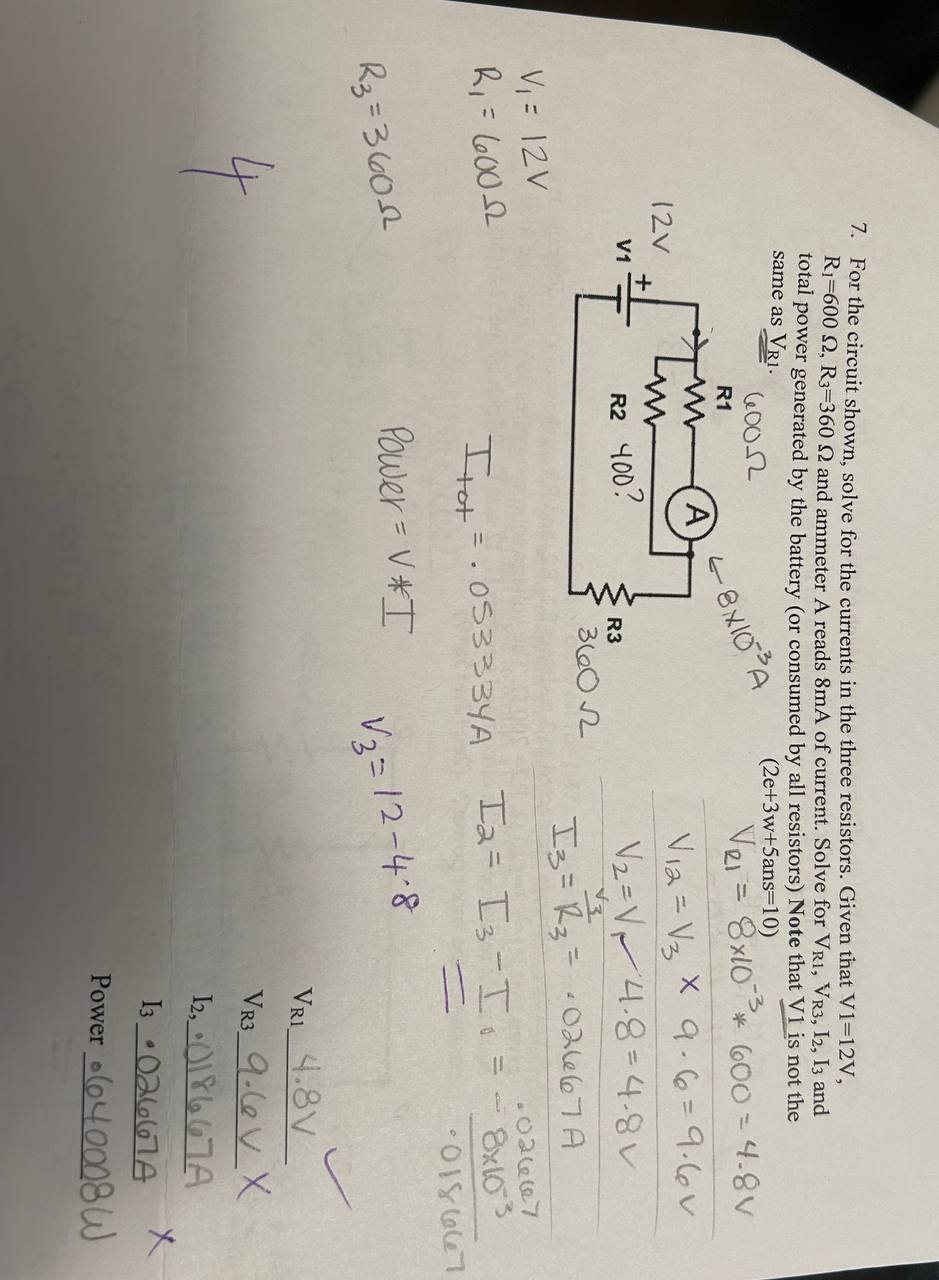 7. For the circuit shown, solve for the currents in the three resistors. Given that V1=12V,
R1=600 Ω, R3=360 Ω and ammeter A reads 8mA of current. Solve for VR1, VR3, I2, I3 and
total power generated by the battery (or consumed by all resistors) Note that V1 is not the
same as VR1.
(2e+3w+5ans=10)
600Ω
R1
A
←8x10⁻³A
12V
V1
+
R2 400?
R3
360Ω
VR1 = 8x10⁻³ * 600 = 4.8V
V12 = V3 x 9.6 = 9.6V
V2 = V1 4.8 = 4.8V
I3 = V3 R3 = .02667A
V1 = 12V
R1 = 600Ω
R3 = 360Ω
Itot = .053334A
I2 = I3 - I1 =
.02667
- 8x10⁻³
.018667
Power = V*I
V3 = 12-4.8
4
VR1 4.8V ✓
VR3 9.6V X
I2, .018667A
I3 .02667A X
Power .640008W